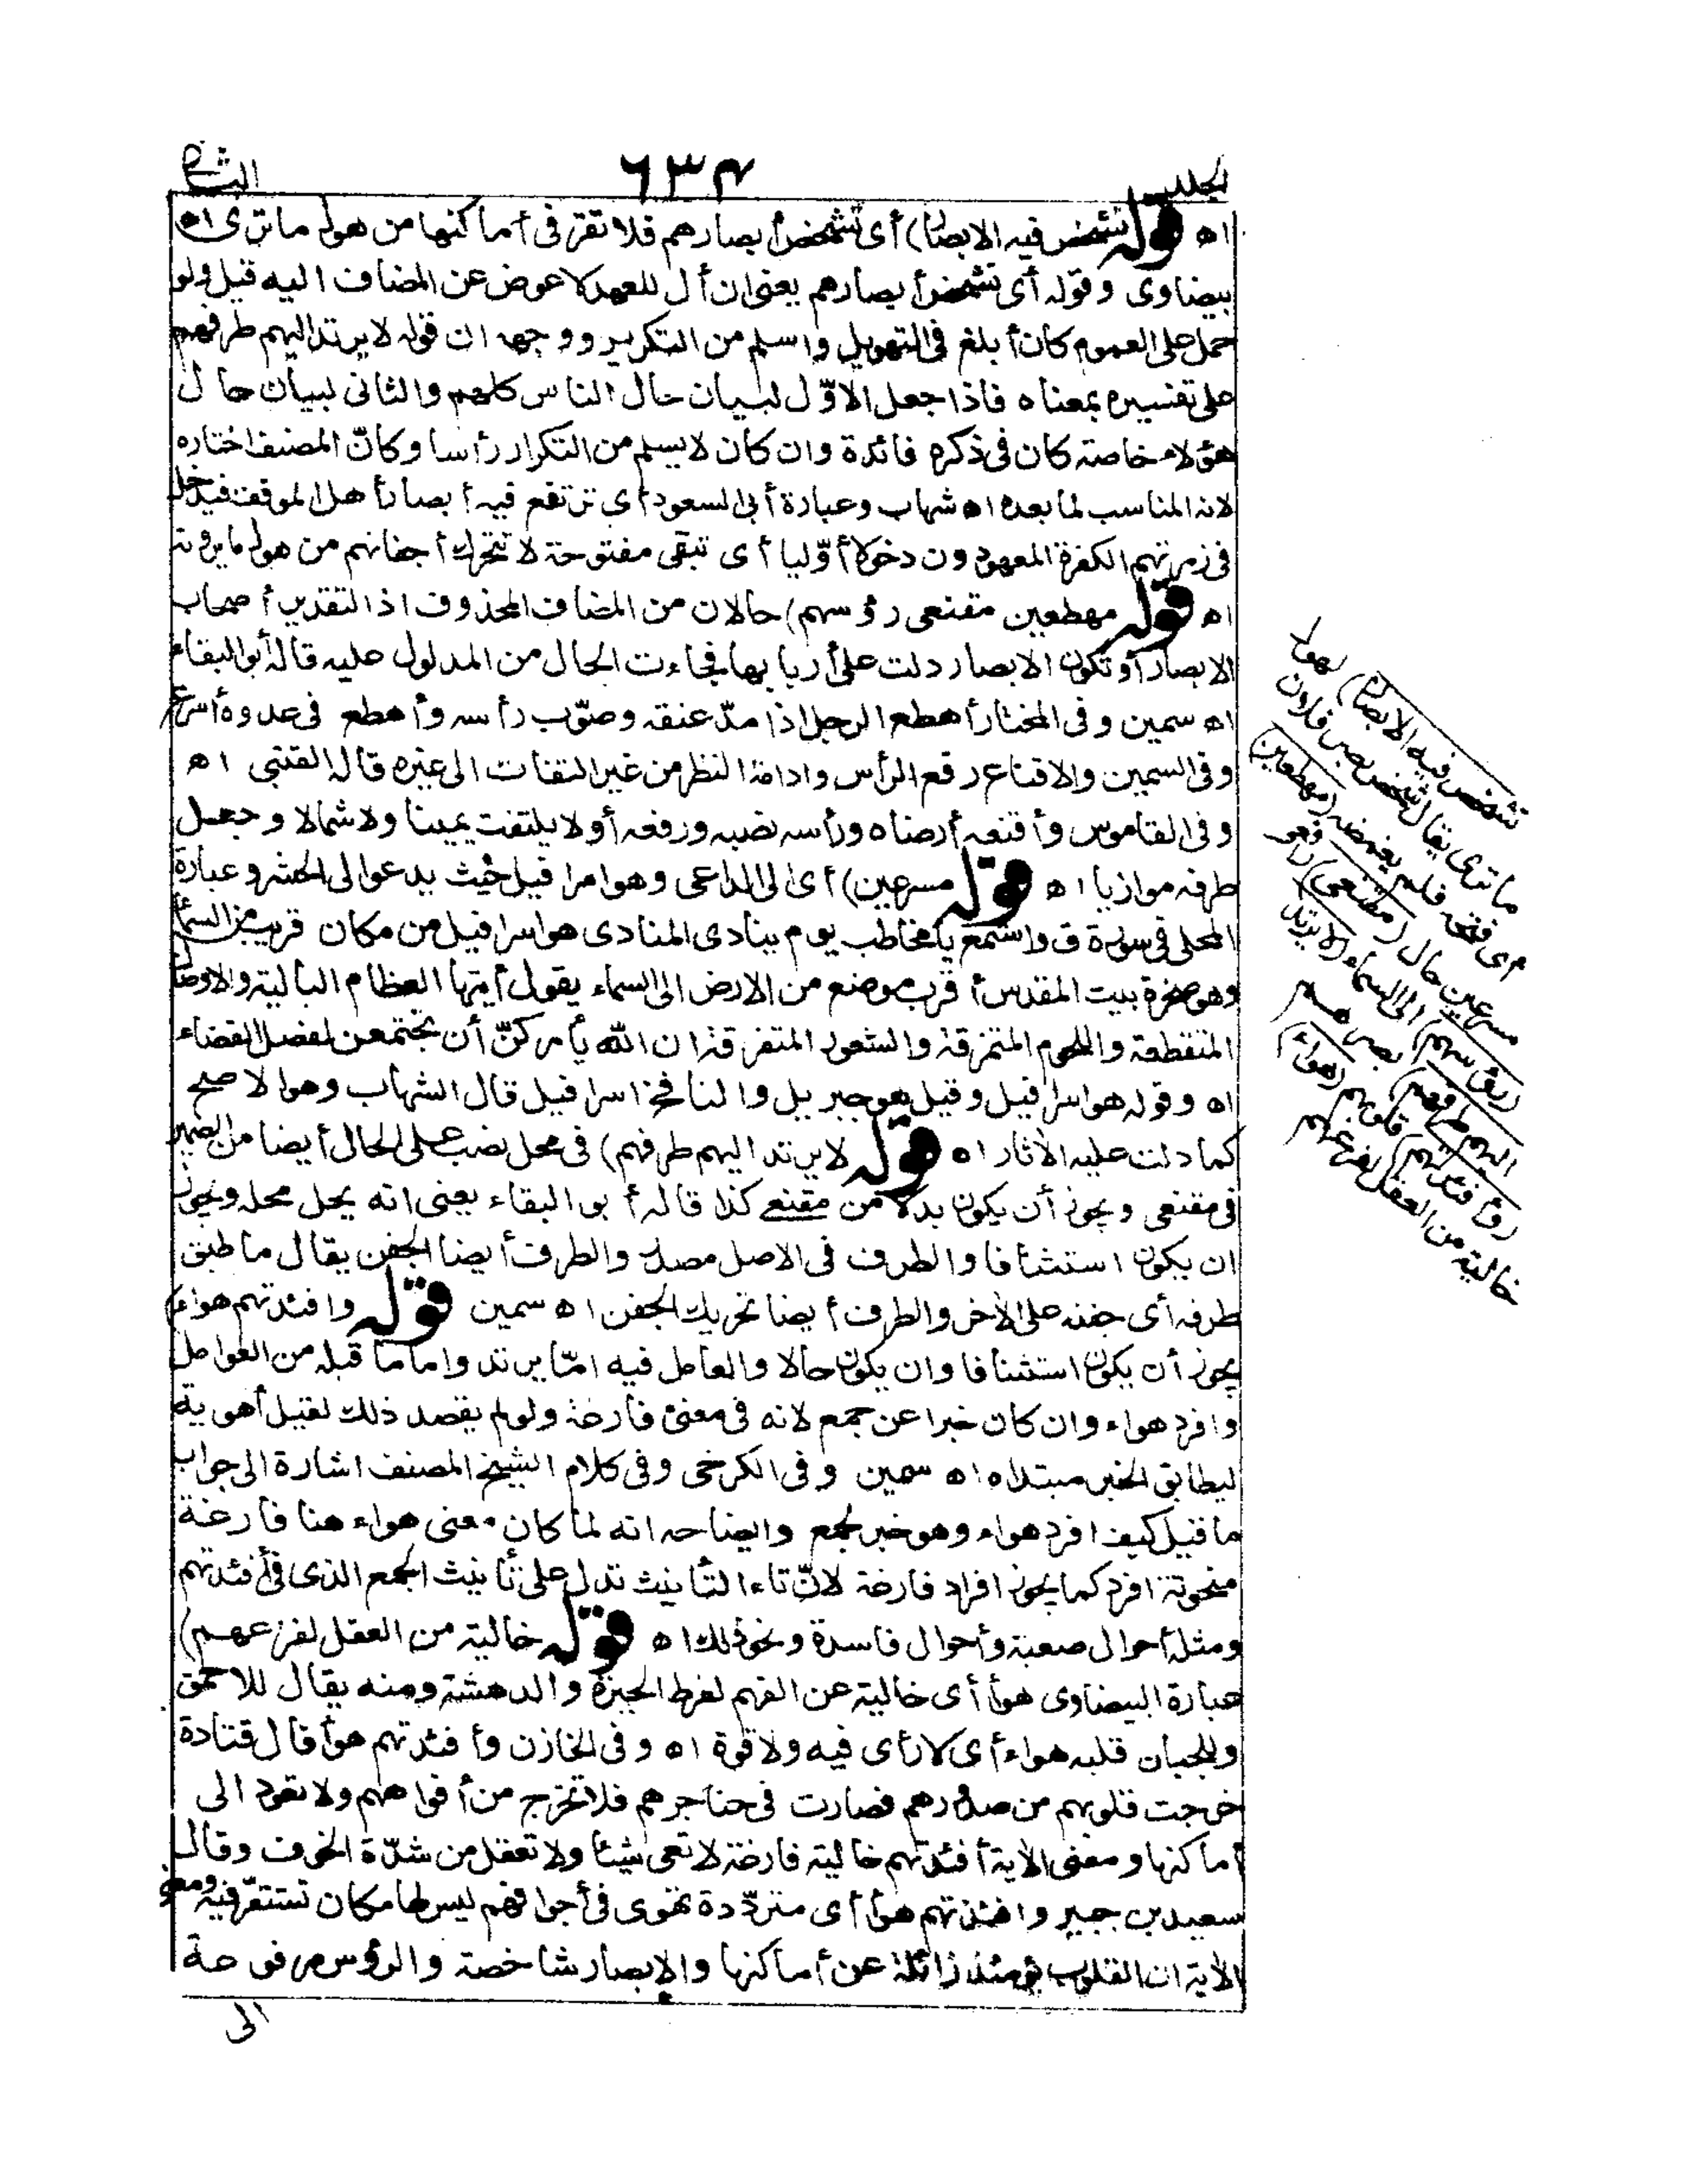 الجلد
٦٣٤
الثاني
اه قوله تشخص فيه الابصار) أى تشخص أبصارهم فلا تقر فى أماكنها من هول ما ترى اه
بيضاوى وقوله أى تشخص أبصارهم يعنى ان أل للعهد لا عوض عن المضاف اليه قيل ولو
حمل على العموم كان أبلغ فى التهويل واسلم من التكرير ووجهه ان قوله لا يرتد اليهم طرفهم
على تفسيره بمعناه فاذا جعل الاوّل لبيان حال الناس كلهم والثانى لبيان حال
هؤلاء خاصة كان فى ذكره فائدة وان كان لا يسلم من التكرار رأسا وكانّ المصنف اختاره
لانه المناسب لما بعده اه شهاب وعبارة أبى السعود أى ترتفع فيه أبصار أهل الموقف فيدخل
فى زمرتهم الكفرة المعهودون دخولا أوّليا أى تبقى مفتوحة لا تتحرك أجفانهم من هول ما يرونه
اه قوله مهطعين مقنعى رؤسهم) حالان من المضاف المحذوف اذ التقدير أصحاب
الابصار أو تكون الابصار دلت على أربابها فجاءت الحال من المدلول عليه قاله أبو البقاء
اه سمين وفى المختار أهطع الرجل اذا مدّ عنقه وصوّب رأسه وأهطع فى عدوه أسرع
وفى السمين والاقناع رفع الرأس وادامة النظر من غير التفات الى غيره قاله القتبى اه
وفى القاموس وأقنعه أرضاه ورأسه نصبه ورفعه أو لا يلتفت يمينا ولا شمالا وجعل
طرفه موازيا اه قوله مسرعين) أى الى الداعى وهو اسرافيل حيث يدعو الى الحشر وعبارة
المحلى فى سورة ق واستمع يا مخاطب يوم ينادى المنادى هو اسرافيل من مكان قريب من السماء
وهو صخرة بيت المقدس أقرب موضع من الارض الى السماء يقول أيتها العظام البالية والاوصال
المتقطعة واللحوم المتمزقة والشعور المتفرقة ان الله يأمركنّ أن تجتمعن لفصل القضاء
اه وقوله هو اسرافيل وقيل هو جبريل والنافخ اسرافيل قال الشهاب وهو الاصح
كما دلت عليه الآثار اه قوله لا يرتد اليهم طرفهم) فى محل نصب على الحال أيضا من الضمير
فى مقنعى ويجوز أن يكون بدلا من مقنعى كذا قاله أبو البقاء يعنى انه يحل محله ويجوز
ان يكون استئنافا والطرف فى الاصل مصدر والطرف أيضا الجفن يقال ما طبق
طرفه أى جفنه على الآخر والطرف أيضا تحريك الجفن اه سمين قوله وافئدتهم هواء)
يجوز أن يكون استئنافا وان يكون حالا والعامل فيه امّا يرتد واما ما قبله من العوامل
وافرد هواء وان كان خبرا عن جمع لانه فى معنى فارغة ولو لم يقصد ذلك لقيل أهوية
ليطابق الخبر مبتدأه اه سمين وفى الكرخى وفى كلام الشيخ المصنف اشارة الى جواب
ما قيل كيف افرد هواء وهو خبر لجمع وايضاحه انه لما كان معنى هواء هنا فارغة
منحوتة افرد كما يجوز افراد فارغة لانّ تاء التأنيث تدل على تأنيث الجمع الذى فى أفئدتهم
ومثل أحوال صعبة وأحوال فاسدة ونحو ذلك اه قوله خالية من العقل لفزعهم)
عبارة البيضاوى هواء أى خالية عن الفهم لفرط الحيرة والدهشة ومنه يقال للاحمق
وللجبان قلبه هواء أى لا رأى فيه ولا قوة اه وفى الخازن وأفئدتهم هواء قال قتادة
خرجت قلوبهم من صدورهم فصارت فى حناجرهم فلا تخرج من أفواههم ولا تعود الى
أماكنها ومعنى الآية أفئدتهم خالية فارغة لا تعى شيئا ولا تعقل من شدّة الخوف وقال
سعيد بن جبير وافئدتهم هواء أى متردّدة تهوى فى أجوافهم ليس لها مكان تستقرّ فيه ومعنى
الآية ان القلوب يومئذ زائلة عن أماكنها والابصار شاخصة والرؤس مرفوعة
الى
تشخص فيه الابصار) لهول
ما ترى يقال شخص بصر فلان
أى فتحه فلم يغمضه (مهطعين)
مسرعين حال (مقنعى) رافعى
(رؤسهم) الى السماء (لا يرتد
اليهم طرفهم) بصرهم
(وأفئدتهم) قلوبهم (هواء)
خالية من العقل لفزعهم